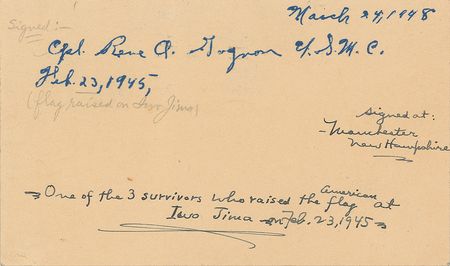 March 24, 1948
Signed:-
Cpl. Rene A. Gagnon U.S.M.C.
Feb. 23, 1945,
(flag raised on Iwo Jima)
signed at:
- Manchester
New Hampshire
One of the 3 survivors who raised the American flag at
Iwo Jima on Feb. 23, 1945